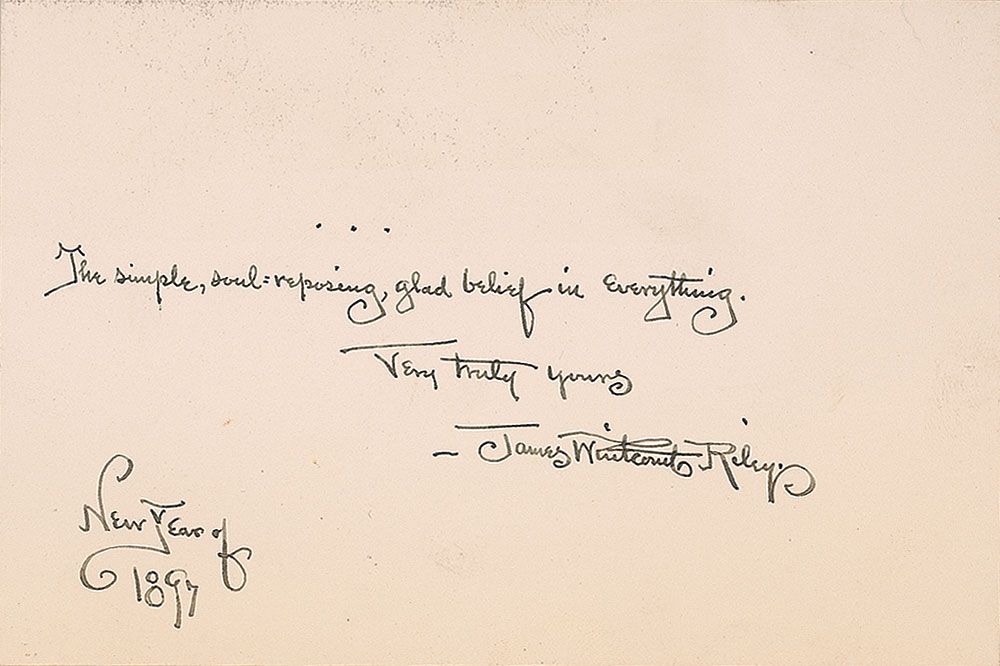 . . .
The simple, soul=reposing, glad belief in everything.
Very truly yours
– James Whitcomb Riley.
New Year of
1897